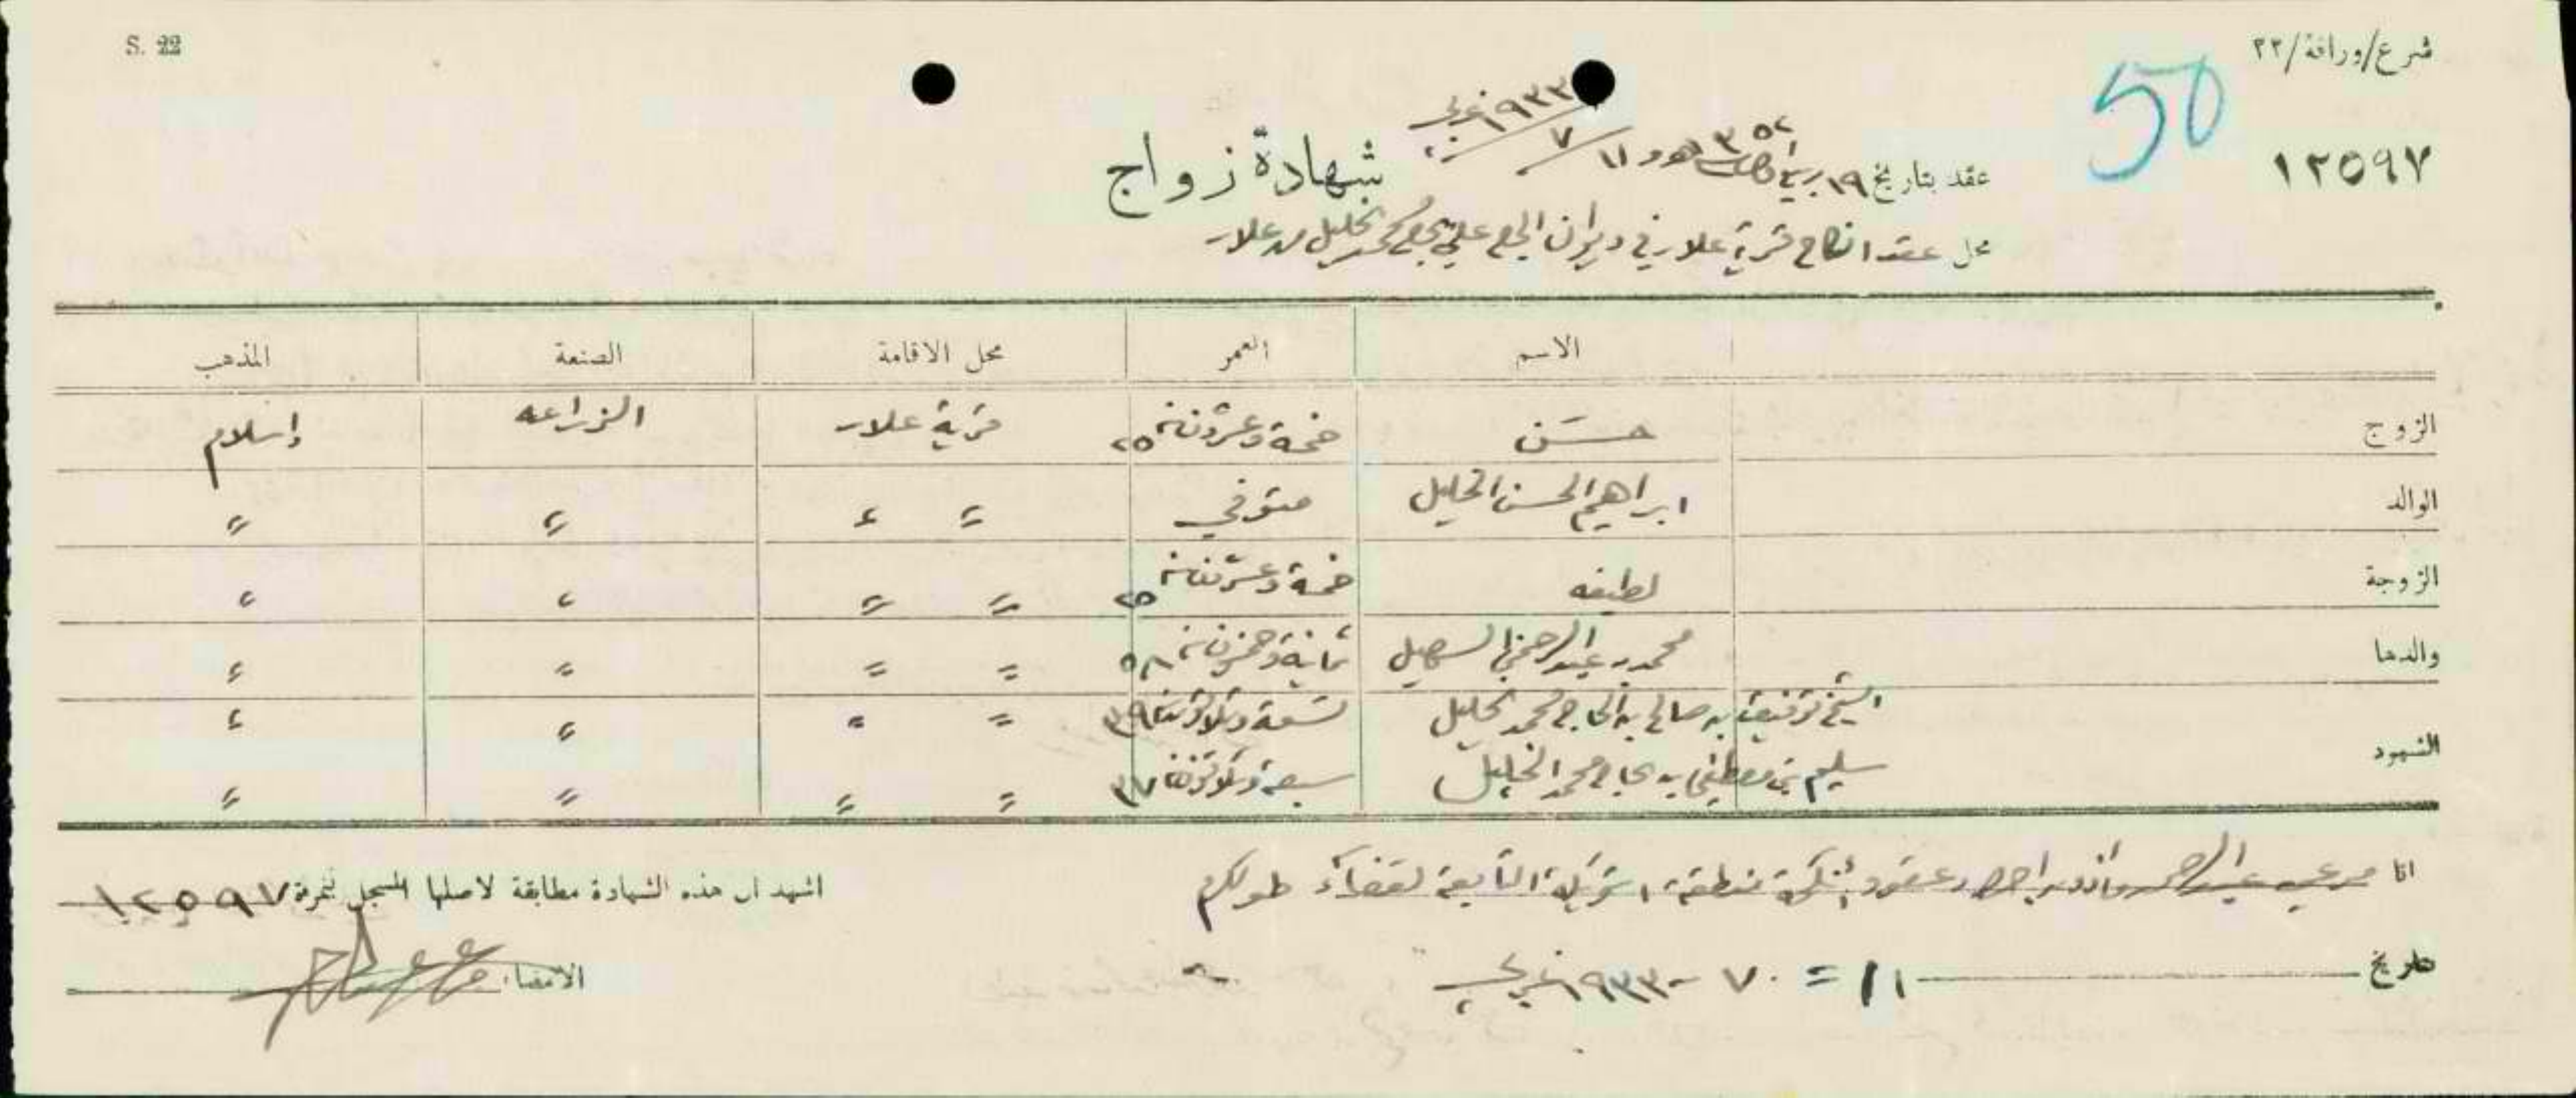 S. 22
شرع/وراقة/٢٢
50
١٢٥٩٧
شهادة زواج
عقد بتاريخ ١٩ ربيع ٣٥٢ هـ و ١١/٧/٩٣٣ غربي
محل عقد انكاح قرية علار في ديوان الحاج علي الحاج محمد الخليل من علار
الاسم العمر محل الاقامة الصنعة المذهب
الزوج حسن خمسة وعشرون سنة ٢٥ قرية علار الزراعه إسلام
الوالد ابراهيم الحسن الخليل متوفي " " " "
الزوجة لطيفه خمسة وعشرون سنة ٢٥ " " " "
والدها محمد بن عبد الرحمن السهيل ثمانية وخمسون سنة ٥٨ " " " "
الشهود الشيخ توفيق بن صالح بن الحاج محمد الخليل تسعة وثلاثون سنة ٣٩ " " " "
سليم بن مصطفى بن الحاج محمد الخليل سبعة وثلاثون سنة ٣٧ " " " "
انا مرعي عبد الرحمن مأذون اجراء عقود أنكحة منطقة التابعة لقضاء طولكرم
تاريخ ١١ = ٧ - ٩٣٣ غربي
اشهد ان هذه الشهادة مطابقة لاصلها المسجل بنمرة ١٢٥٩٧
الامضاء